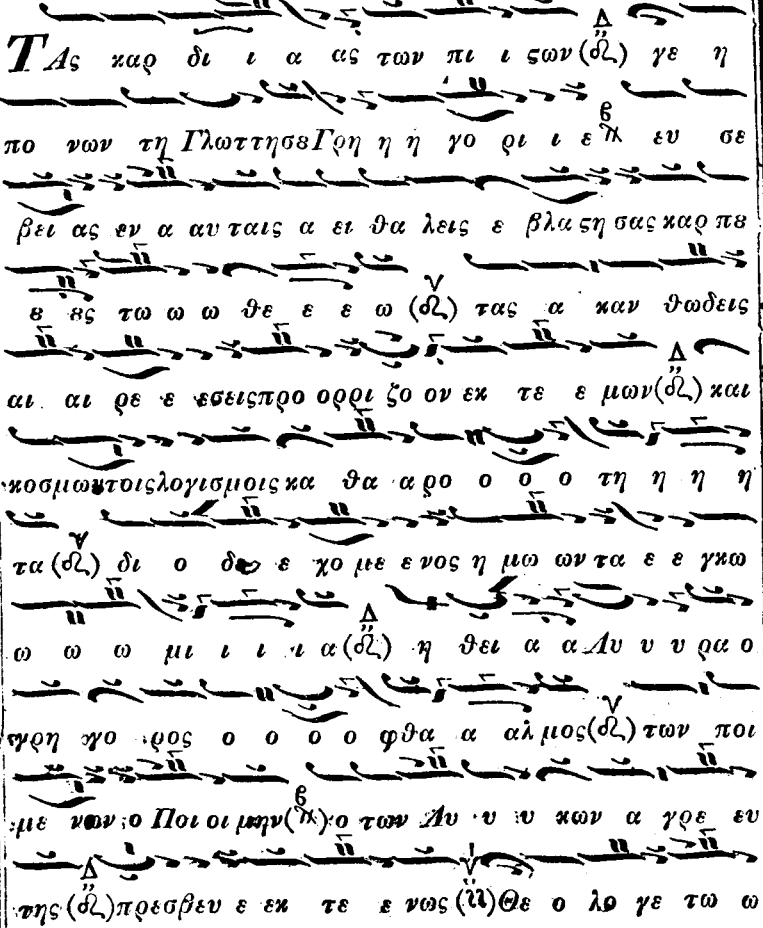 ΤΑς καρ δι ι α ας των πι ι ϛων (δ) γε η
πο νων τη Γλωττησȣ Γρη η ή γο ρι ι ε ευ σε
βει ας εν α αυ ταις α ει θα λεις ε βλα ϛη σας καρ πȣ
ȣ ȣς τω ω ω θε ε ε ω τας α καν θωδεις
αι αι ρε ε εσεις προ ορρι ζο ον εκ τε ε μων και
κοσμων τοις λογισμοις κα θα α ρο ο ο ο τη η η η
τα δι ο δε ε χο με ε νος η μω ων τα ε ε γκω
ω ω ω μι ι ι ι α η θει α α Λυ υ υ ρα ο
γρη γο ρος ο ο ο ο φθα α αλ μος των ποι
με νων ο Ποι οι μην ο των Λυ υ υ κων α γρε ευ
της πρεσβευ ε εκ τε ε νως Θε ο λο γε τω ω